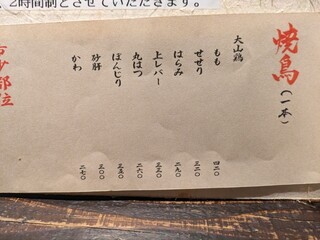 、2時間制とさせていただきます。
焼鳥(一本)
大山鶏
もも 四二〇
せせり 三二〇
はらみ 二九〇
上レバー 三三〇
丸はつ 二六〇
ぼんじり 三五〇
砂肝 三〇〇
かわ 二七〇
希少部位